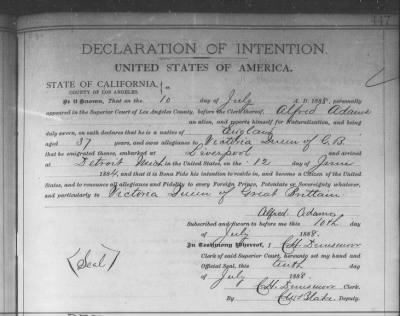 447
DECLARATION OF INTENTION.
UNITED STATES OF AMERICA.
STATE OF CALIFORNIA, } ss
COUNTY OF LOS ANGELES.
Be it Known, That on the 10 day of July A. D. 1888, personally
appeared in the Superior Court of Los Angeles County, before the Clerk thereof, Alfred Adams
an alien, and reports himself for Naturalization, and being
duly sworn, on oath declares that he is a native of England
aged 37 years, and owes allegiance to Victoria Queen of G.B.
that he emigrated thence, embarked at Liverpool and arrived
at Detroit Mich in the United States, on the 12 day of June
1884, and that it is Bona Fide his intention to reside in, and become a Citizen of the United
States, and to renounce all allegiance and Fidelity to every Foreign Prince, Potentate or Sovereignty whatever,
and particularly to Victoria Queen of Great Brittain
Alfred Adams
Subscribed and sworn to before me this 10th day
of July 1888.
In Testimony Whereof, I C.H. Dunsmoor
Clerk of said Superior Court, hereunto set my hand and
Official Seal, this tenth day
(Seal)
of July 1888.
C.H. Dunsmoor Clerk.
By C.W. Blake Deputy.